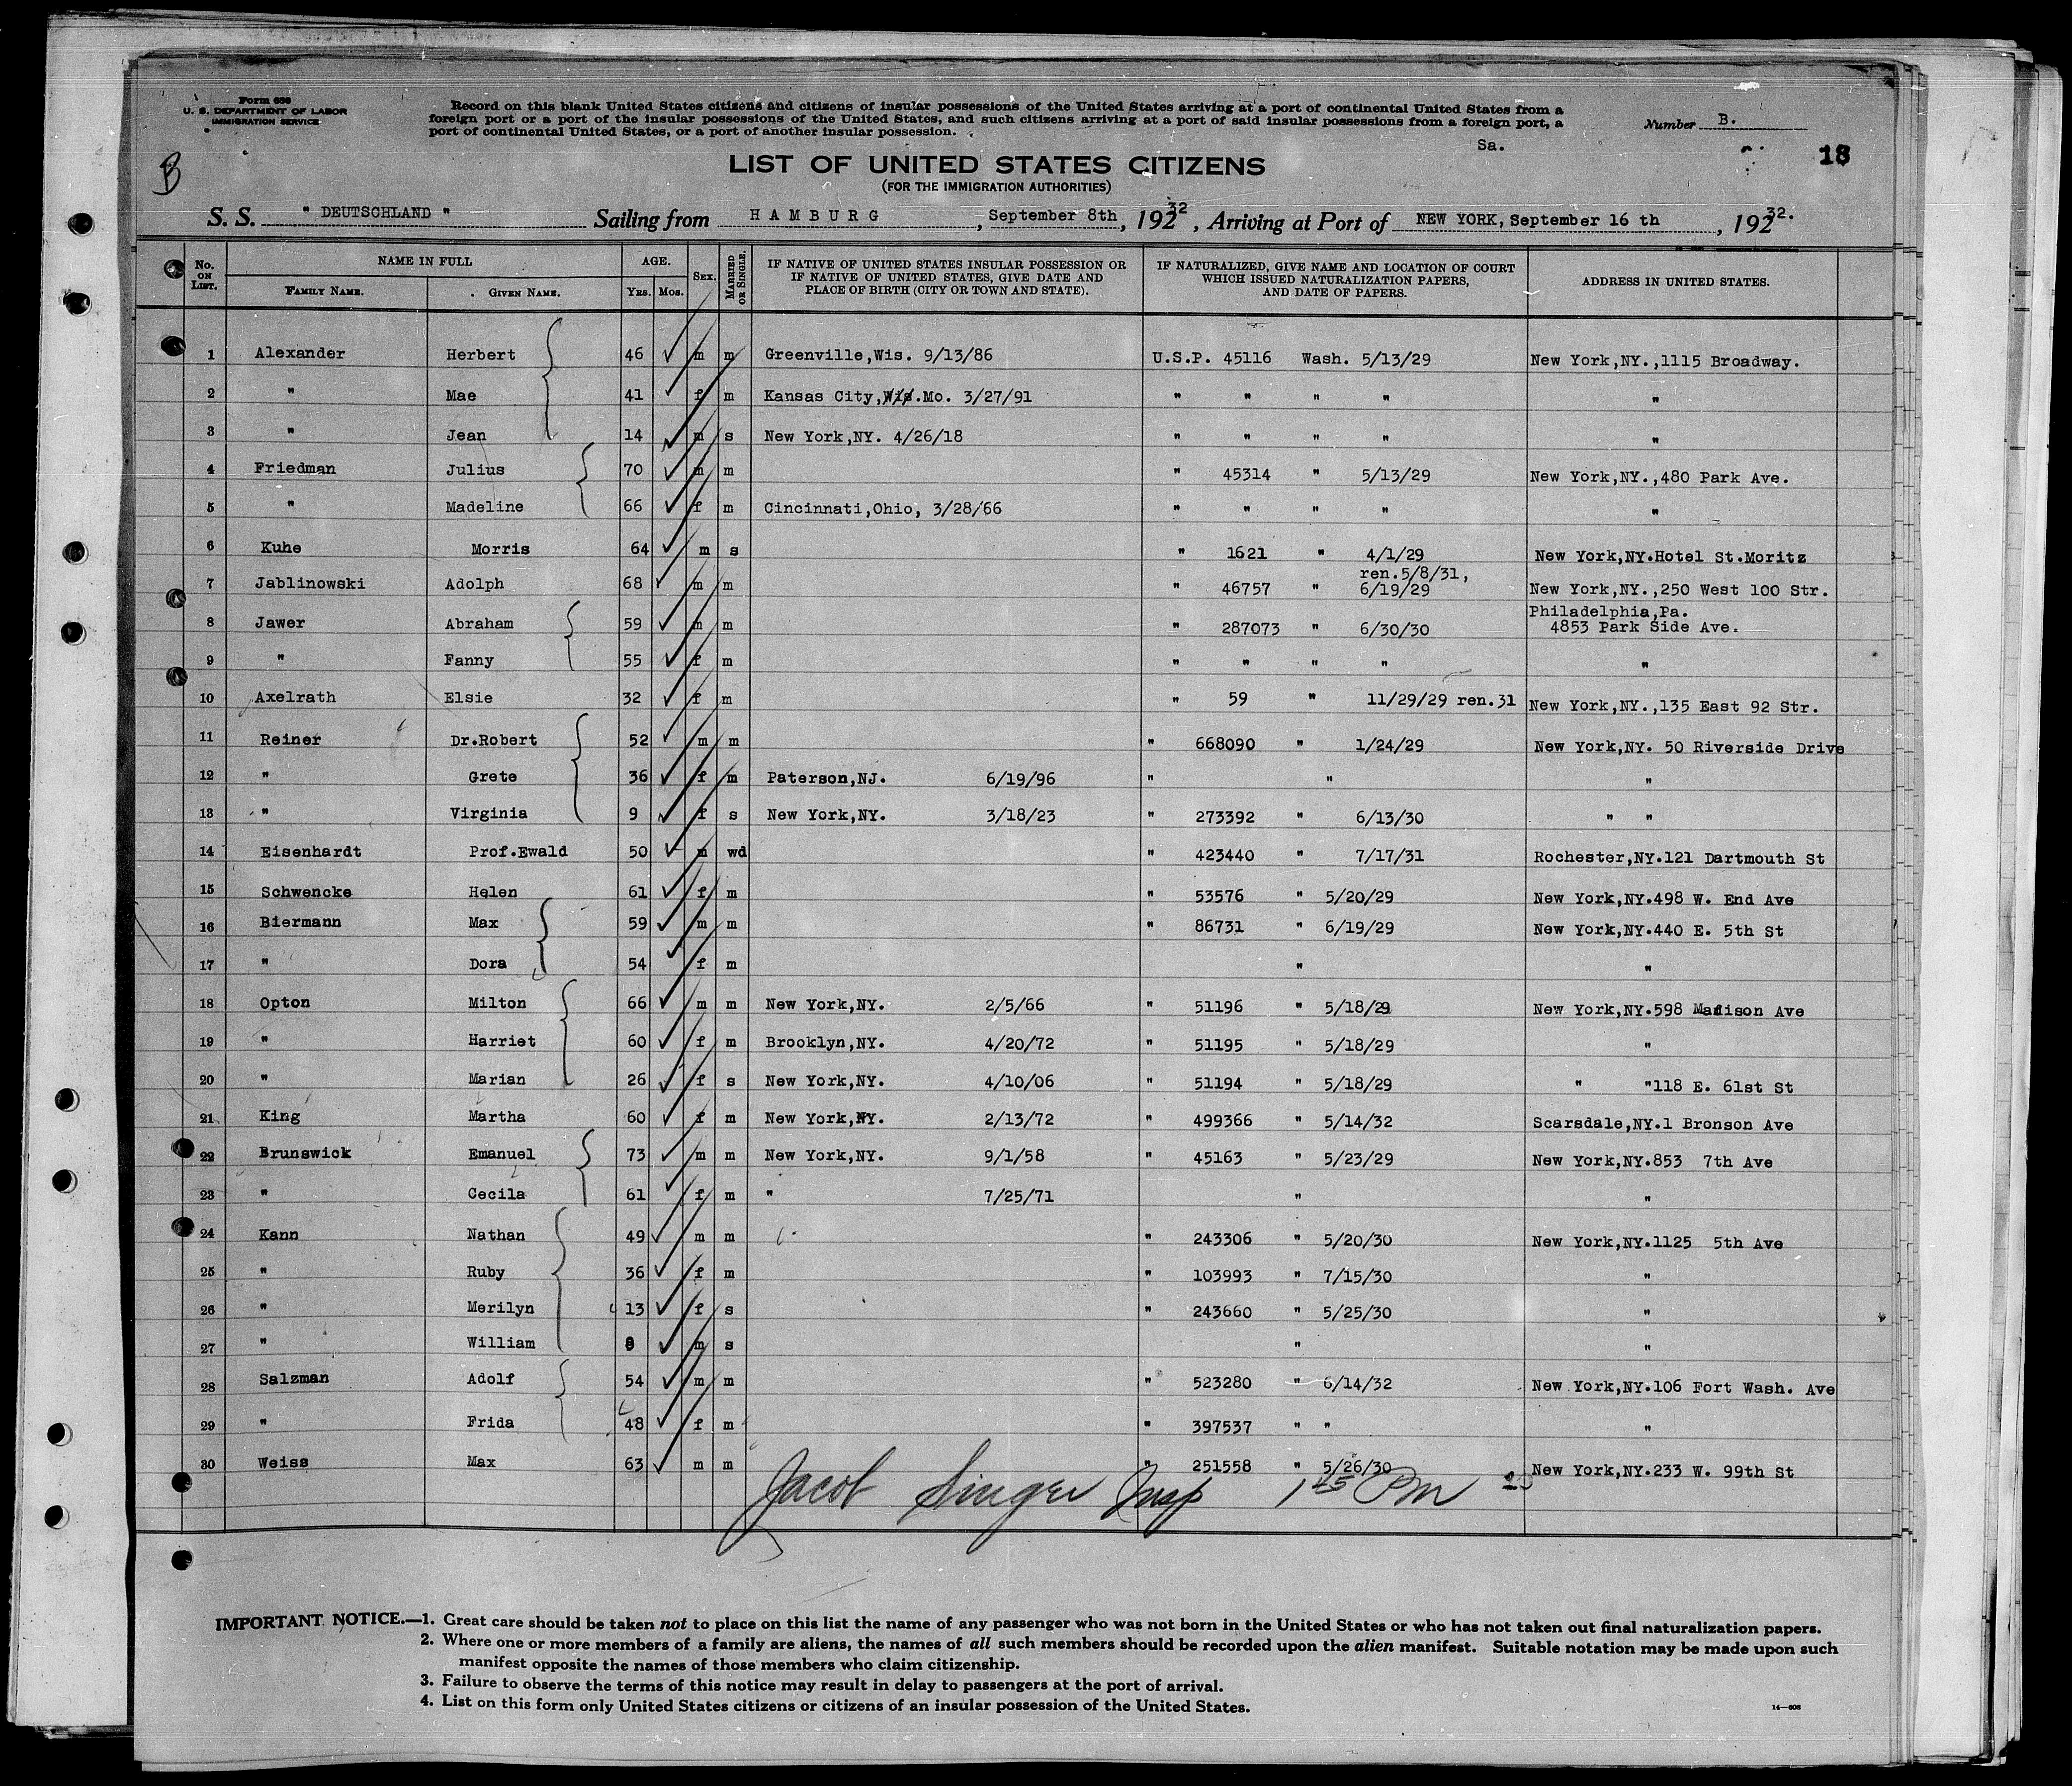 Form 630
U. S. DEPARTMENT OF LABOR
IMMIGRATION SERVICE
Record on this blank United States citizens and citizens of insular possessions of the United States arriving at a port of continental United States from a
foreign port or a port of the insular possessions of the United States, and such citizens arriving at a port of said insular possessions from a foreign port, a
port of continental United States, or a port of another insular possession.
Number B.
Sa.
B
13
LIST OF UNITED STATES CITIZENS
(FOR THE IMMIGRATION AUTHORITIES)
S. S. " DEUTSCHLAND " Sailing from HAMBURG, September 8th, 192 32, Arriving at Port of NEW YORK, September 16 th, 192 32.
No. ON LIST. NAME IN FULL FAMILY NAME. GIVEN NAME. AGE. YRS. MOS. SEX. MARRIED OR SINGLE. IF NATIVE OF UNITED STATES INSULAR POSSESSION OR IF NATIVE OF UNITED STATES, GIVE DATE AND PLACE OF BIRTH (CITY OR TOWN AND STATE). IF NATURALIZED, GIVE NAME AND LOCATION OF COURT WHICH ISSUED NATURALIZATION PAPERS, AND DATE OF PAPERS. ADDRESS IN UNITED STATES.
1 Alexander Herbert 46 m m Greenville,Wis. 9/13/86 U.S.P. 45116 Wash. 5/13/29 New York,NY.,1115 Broadway.
2 " Mae 41 f m Kansas City,Wis.Mo. 3/27/91 " " " " "
3 " Jean 14 m s New York,NY. 4/26/18 " " " " "
4 Friedman Julius 70 m m " 45314 " 5/13/29 New York,NY.,480 Park Ave.
5 " Madeline 66 f m Cincinnati,Ohio, 3/28/66 " " " " "
6 Kuhe Morris 64 m s " 1621 " 4/1/29 New York,NY.Hotel St.Moritz
ren.5/8/31,
7 Jablinowski Adolph 68 m m " 46757 " 6/19/29 New York,NY.,250 West 100 Str.
Philadelphia,Pa.
8 Jawer Abraham 59 m m " 287073 " 6/30/30 4853 Park Side Ave.
9 " Fanny 55 f m " " " " "
10 Axelrath Elsie 32 f m " 59 " 11/29/29 ren.31 New York,NY.,135 East 92 Str.
11 Reiner Dr.Robert 52 m m " 668090 " 1/24/29 New York,NY. 50 Riverside Drive
12 " Grete 36 f m Paterson,NJ. 6/19/96 " " "
13 " Virginia 9 f s New York,NY. 3/18/23 " 273392 " 6/13/30 " "
14 Eisenhardt Prof.Ewald 50 m wd " 423440 " 7/17/31 Rochester,NY.121 Dartmouth St
15 Schwencke Helen 61 f m " 53576 " 5/20/29 New York,NY.498 W. End Ave
16 Biermann Max 59 m m " 86731 " 6/19/29 New York,NY.440 E. 5th St
17 " Dora 54 f m " "
18 Opton Milton 66 m m New York,NY. 2/5/66 " 51196 " 5/18/29 New York,NY.598 Madison Ave
19 " Harriet 60 f m Brooklyn,NY. 4/20/72 " 51195 " 5/18/29 "
20 " Marian 26 f s New York,NY. 4/10/06 " 51194 " 5/18/29 " "118 E. 61st St
21 King Martha 60 f m New York,NY. 2/13/72 " 499366 " 5/14/32 Scarsdale,NY.1 Bronson Ave
22 Brunswick Emanuel 73 m m New York,NY. 9/1/58 " 45163 " 5/23/29 New York,NY.853 7th Ave
23 " Cecila 61 f m " 7/25/71 " "
24 Kann Nathan 49 m m " 243306 " 5/20/30 New York,NY.1125 5th Ave
25 " Ruby 36 f m " 103993 " 7/15/30 "
26 " Merilyn 13 f s " 243660 " 5/25/30 "
27 " William m s " "
28 Salzman Adolf 54 m m " 523280 " 6/14/32 New York,NY.106 Fort Wash. Ave
29 " Frida 48 f m " 397537 " " "
30 Weiss Max 63 m m " 251558 " 5/26/30 New York,NY.233 W. 99th St
Jacob Singer Insp 1 45 PM
IMPORTANT NOTICE.—1. Great care should be taken not to place on this list the name of any passenger who was not born in the United States or who has not taken out final naturalization papers.
2. Where one or more members of a family are aliens, the names of all such members should be recorded upon the alien manifest. Suitable notation may be made upon such
manifest opposite the names of those members who claim citizenship.
3. Failure to observe the terms of this notice may result in delay to passengers at the port of arrival.
4. List on this form only United States citizens or citizens of an insular possession of the United States.
14—608